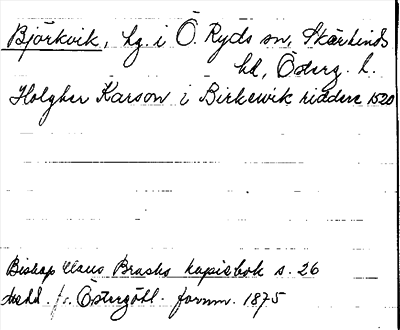 Björkvik, hg. i Ö. Ryds sn, Skärkinds
hd, Österg. l.
Holgher Karson i Birkewik riddere 1520
Biskop Claus Brasks kopiebok s. 26
. fr. Östergötl. fornm. 1875